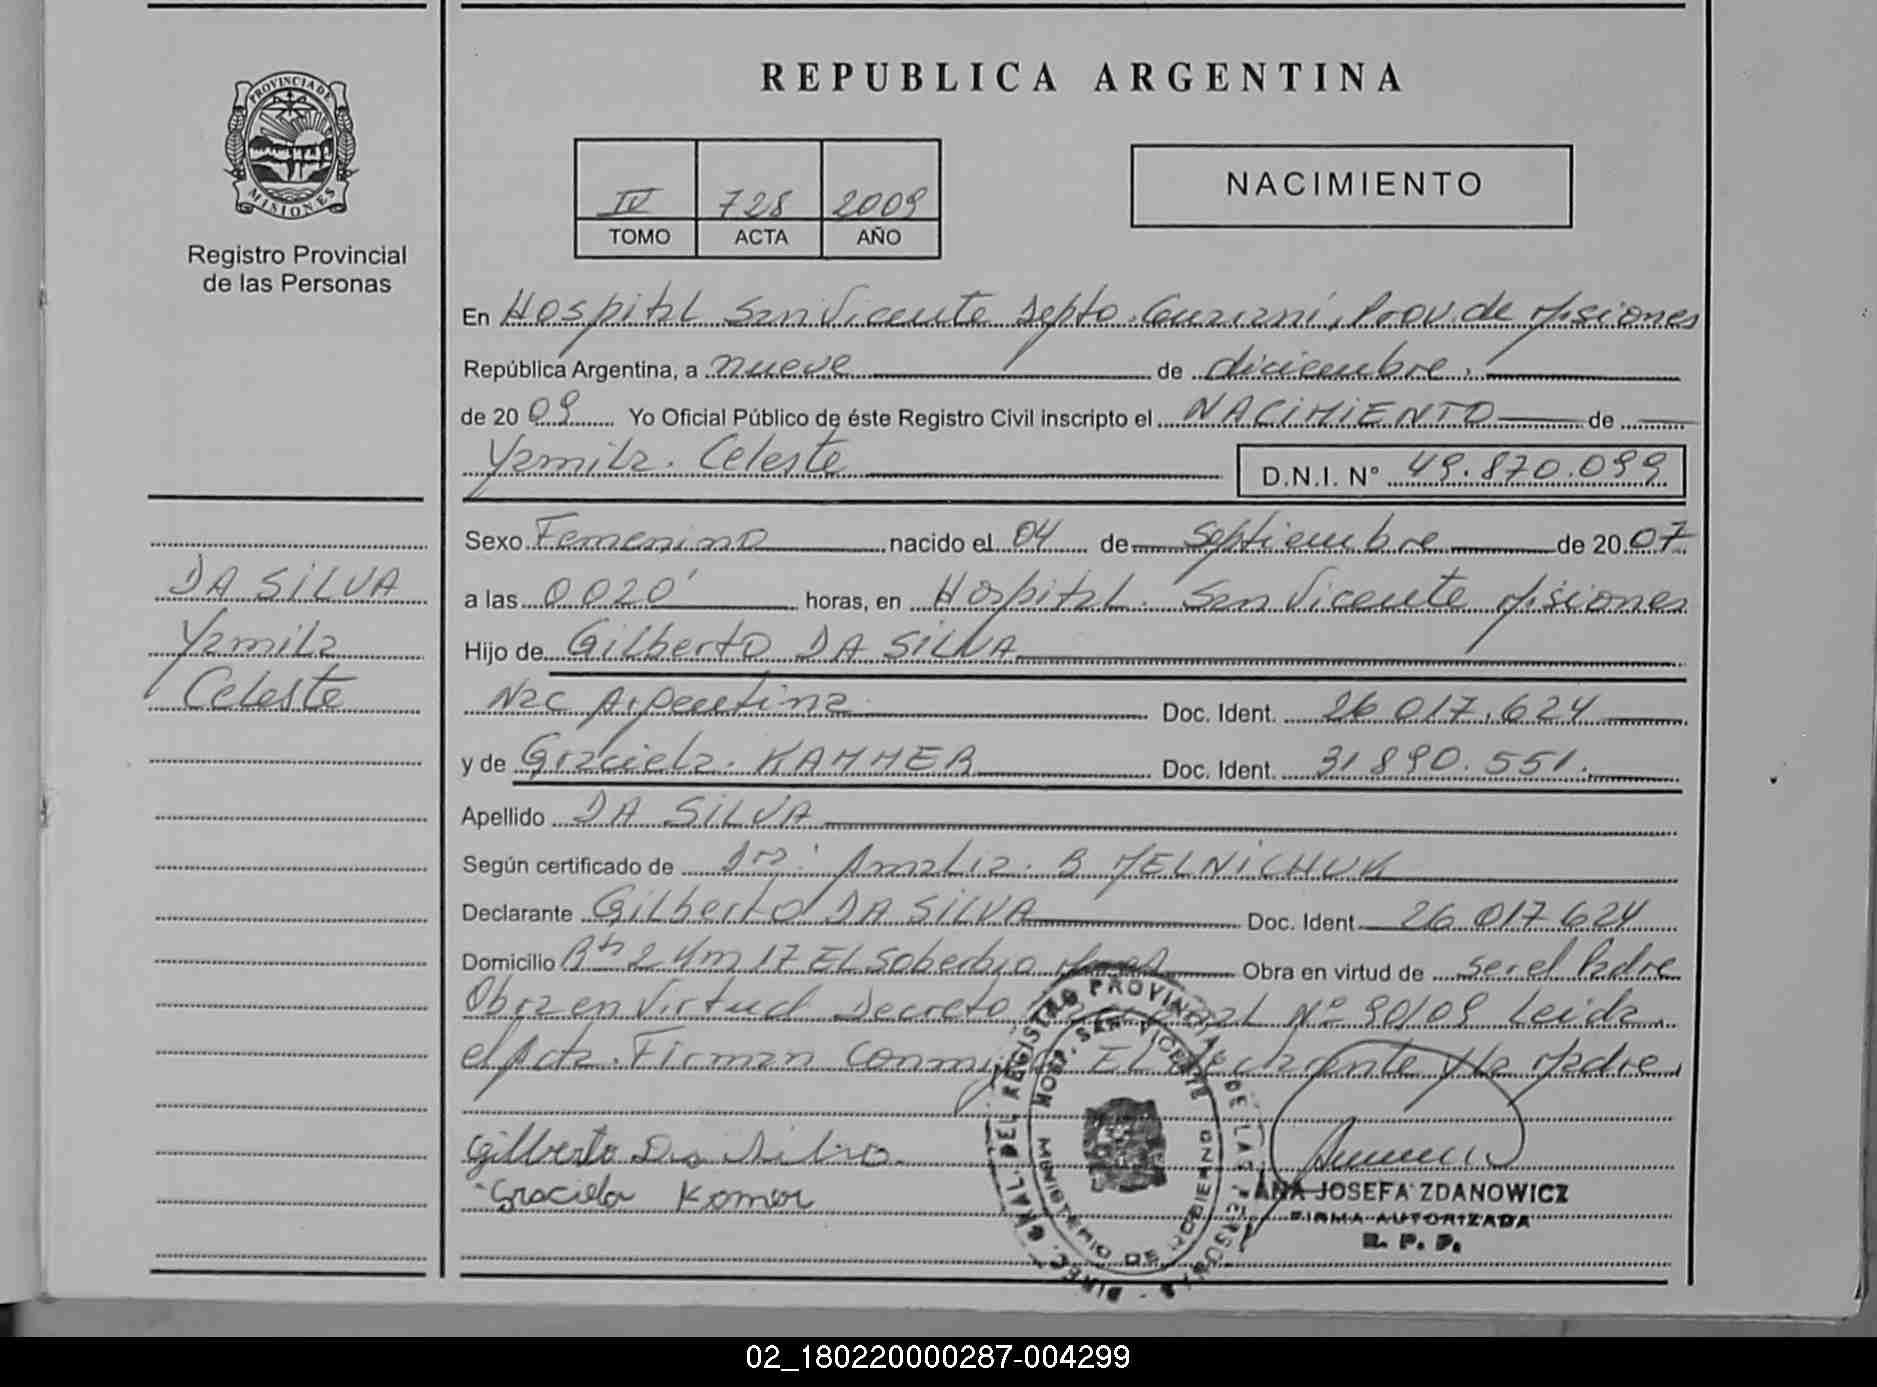 REPUBLICA ARGENTINA
PROVINCIA DE
MISIONES
Registro Provincial
de las Personas
IV 728 2009
TOMO ACTA AÑO
NACIMIENTO
En Hospital San Vicente Depto. Guarani, Prov. de Misiones
República Argentina, a nueve de diciembre,
de 20 09 Yo Oficial Público de éste Registro Civil inscripto el NACIMIENTO de
Yamila. Celeste
D.N.I. Nº 49.870.099
DA SILVA
Yamila
Celeste
Sexo Femenino nacido el 04 de Septiembre de 20 07
a las 0020' horas, en Hospital. San Vicente Misiones
Hijo de Gilberto DA SILVA
Nac Argentina Doc. Ident. 26 017.624
y de Graciela. KAMMER Doc. Ident. 31 890.551.
Apellido DA SILVA
Según certificado de Dra: Amalia. B MELNICHUK
Declarante Gilberto DA SILVA Doc. Ident. 26 017 624
Domicilio Rta 2 Km 17 El Soberbio Obra en virtud de ser el Padre
Obra en Virtud Decreto Nº 90/09 Leida
el Acta. Firman Conmigo El declarante y la Madre
Gilberto Da Silva
Graciela Komer
DIREC. GRAL. DEL REGISTRO PROVINCIAL DE LAS PERSONAS
HOSP. SAN VICENTE
MINISTERIO DE GOBIERNO
ANA JOSEFA ZDANOWICZ
FIRMA AUTORIZADA
R. P. P.
02_180220000287-004299